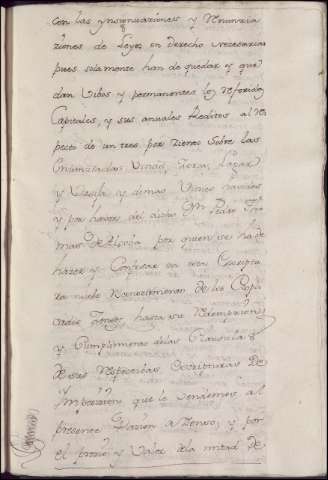 con las ynsinuaciones y Renuncia
ziones de Leyes en derecho necesarias
pues solamente han de quedar y que
dan Vibos y permanentes los referidos
Capitales, y sus anuales Reditos al Res
pecto de un tres por ziento Sobre las
Enunciadas Viñas, Tierra, Lagar
y Vasija y demas Vienes
y por haver del dicho Dn Pedro Tho
mas de por quien se ha de
hazer y Confesar en esta Escriptu
ra nuebo Reconocimiento de los Capi
tales Zensos hasta su Redempcion
y Cumplimiento de las Clausulas
de sus respectibas Escripturas de
Imposicion, que le vendemos al
presente a Zenso, y por
el precio y Valor de la mitad de